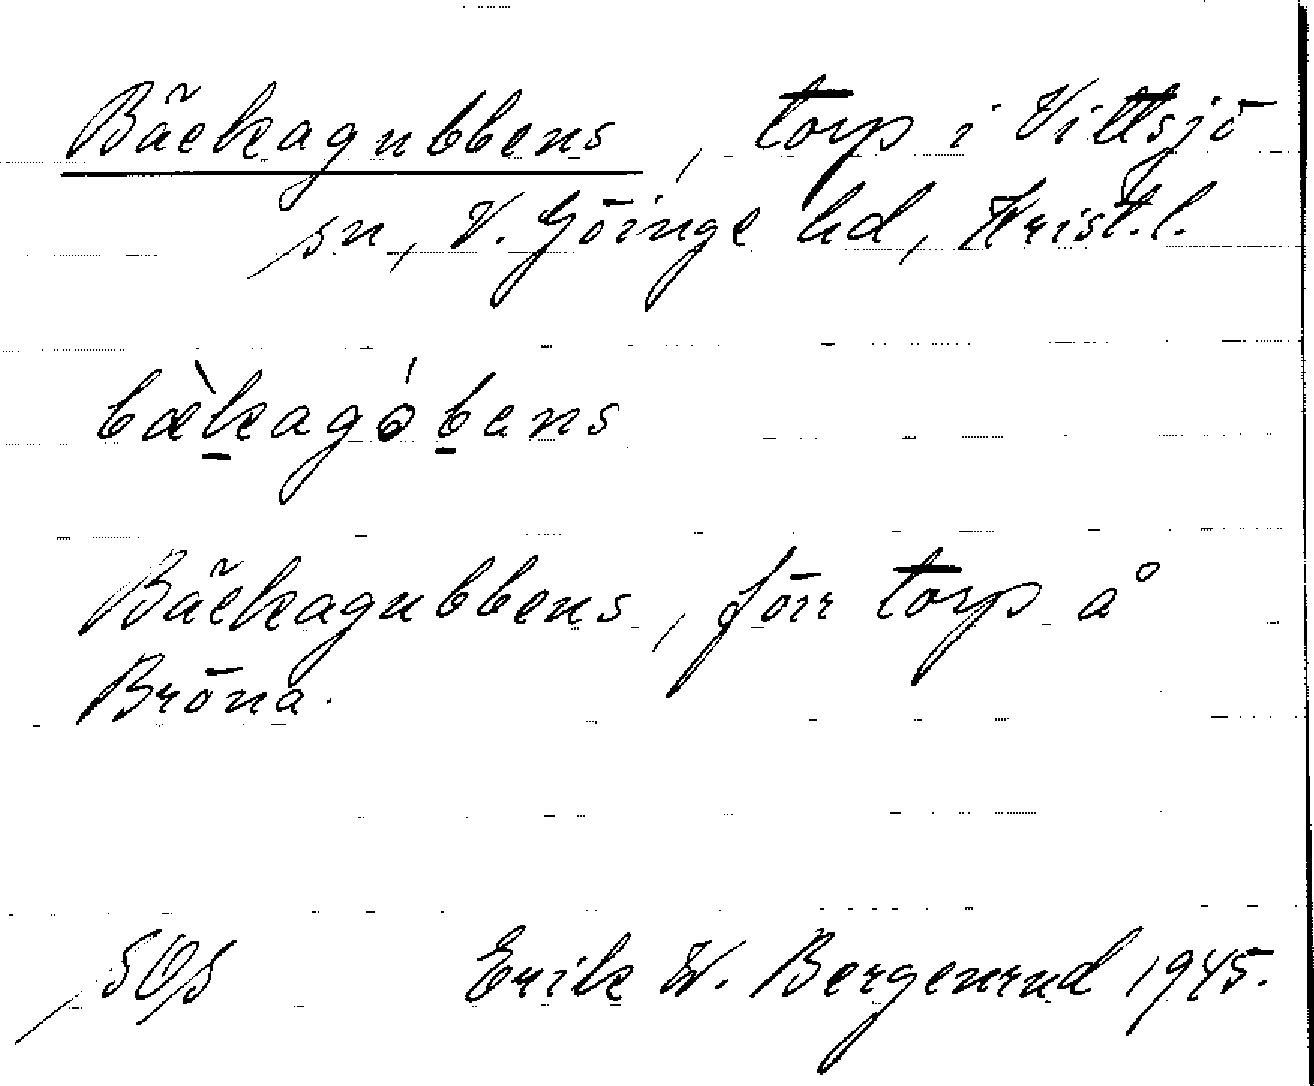 Bäckagubbens, torp i Vittsjö
sn, V. Göinge hd, Krist. l.
bæ̀kagóbens
Bäckagubbens, förr torp å
Bröna.
SOS Erik W. Bergenrud 1945.